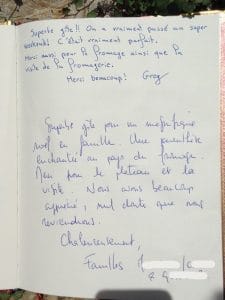 Superbe gîte!! On a vraiment passé un super
weekend! C'était vraiment parfait.
Merci aussi pour la fromage ainsi que la
visite de la fromagerie.
Merci beaucoup! Greg
Superbe gîte pour un magnifique
noël en famille. Une parenthèse
enchantée au pays du fromage.
pour le plateau et la
visite. Nous avons beaucoup
apprécié, nul doute que nous
reviendrons.
Chaleureusement,
Familles
&